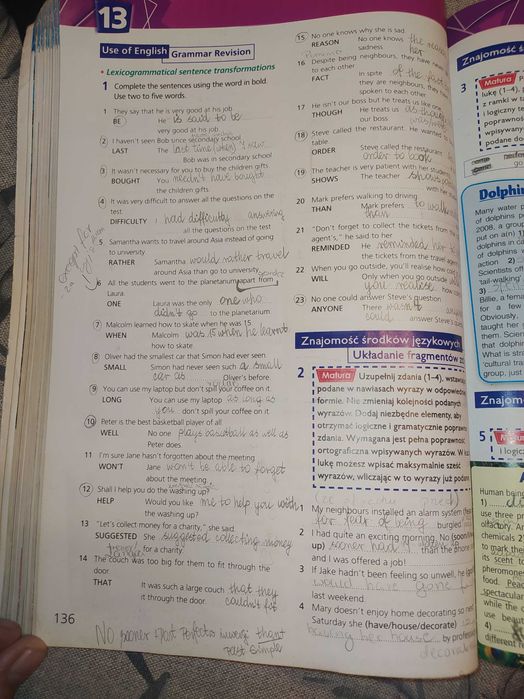 13
Use of English Grammar Revision
• Lexicogrammatical sentence transformations
1 Complete the sentences using the word in bold.
Use two to five words.
1 They say that he is very good at his job.
BE He is said to be
very good at his job.
2 I haven't seen Bob since secondary school.
LAST The last time (when) I saw
Bob was in secondary school
3 It wasn't necessary to buy the children gifts.
BOUGHT You needn't have bought
the children gifts.
4 It was very difficult to answer all the questions on the
test.
DIFFICULTY I had difficulty answering
all the questions on the test
5 Samantha wants to travel around Asia instead of going
to university.
RATHER Samantha would rather travel
around Asia than go to university.
6 All the students went to the planetarium apart from
Laura.
ONE Laura was the only one who
didn't go to the planetarium
7 Malcolm learned how to skate when he was 15.
WHEN Malcolm was 15 when he learnt
how to skate.
8 Oliver had the smallest car that Simon had ever seen.
SMALL Simon had never seen such a small
car as Oliver's before.
9 You can use my laptop but don't spill your coffee on it.
LONG You can use my laptop as long as
you don't spill your coffee on it.
10 Peter is the best basketball player of all.
WELL No one plays basketball as well as
Peter does.
11 I'm sure Jane hasn't forgotten about the meeting.
WON'T Jane won't be able to forget
about the meeting.
12 Shall I help you do the washing up?
HELP Would you like me to help you with
the washing up?
13 "Let's collect money for a charity," she said.
SUGGESTED She suggested collecting money
for a charity.
14 The couch was too big for them to fit through the
door.
THAT It was such a large couch that they
couldn't fit
it through the door.
136
No sooner Past Perfect inwersja than
Past Simple
15 No one knows why she is sad
REASON No one knows the reason
her
sadness
16 Despite being neighbours, they have never
to each other.
FACT In spite of the fact
they are neighbours, they
spoken to each other.
17 He isn't our boss but he treats us like one.
THOUGH He treats us as though
our boss
18 Steve called the restaurant. He wanted to
table.
ORDER Steve called the restaurant
order to book
19 The teacher is very patient with her students
SHOWS The teacher shows
with her
20 Mark prefers walking to driving.
THAN Mark prefers to walk
than
21 "Don't forget to collect the tickets from the
agent's," he said to her.
REMINDED He reminded her
the tickets from the travel agent
22 When you go outside, you'll realise how cold
WILL Only when you go outside will
you realise how
23 No one could answer Steve's question.
ANYONE There wasn't anyone
could answer Steve's question
Znajomość środków językowych
Układanie fragmentów
2 Matura Uzupełnij zdania (1–4), wstawiając
podane w nawiasach wyrazy w odpowiedniej
formie. Nie zmieniaj kolejności podanych
wyrazów. Dodaj niezbędne elementy, aby
otrzymać logiczne i gramatycznie poprawne
zdania. Wymagana jest pełna poprawność
ortograficzna wpisywanych wyrazów. W każdą
lukę możesz wpisać maksymalnie sześć
wyrazów, wliczając w to wyrazy już podane.
1 My neighbours installed an alarm system
for fear of being burgled
2 I had quite an exciting morning. No (soon/
up) sooner had I than the phone
and I was offered a job!
3 If Jake hadn't been feeling so unwell, he
would have gone
last weekend.
4 Mary doesn't enjoy home decorating so next
Saturday she (have/house/decorate) is
having her house by professional
decorated
Znajomość ś
3 Matura
lukę (1–4),
z ramki w t
i logiczny te
poprawnoś
wpisywany
podane do
Dolphin
Many water p
of dolphins p
2008, a group
put on air) 1)
of dolphins in
action 2)
Scientists of
tail-walking
3)
Billie, a fema
for a few
Obviously,
taught her
them. Scien
that dolphin
What is stra
'cultural tra
group, just
Znajom
5
i logicz
Human being
1)
use three pr
olfactory. A
chemicals 2)
to mark the
its scent to
pheromones
food. Peac
spectacular
while the
use beaut
4)
different